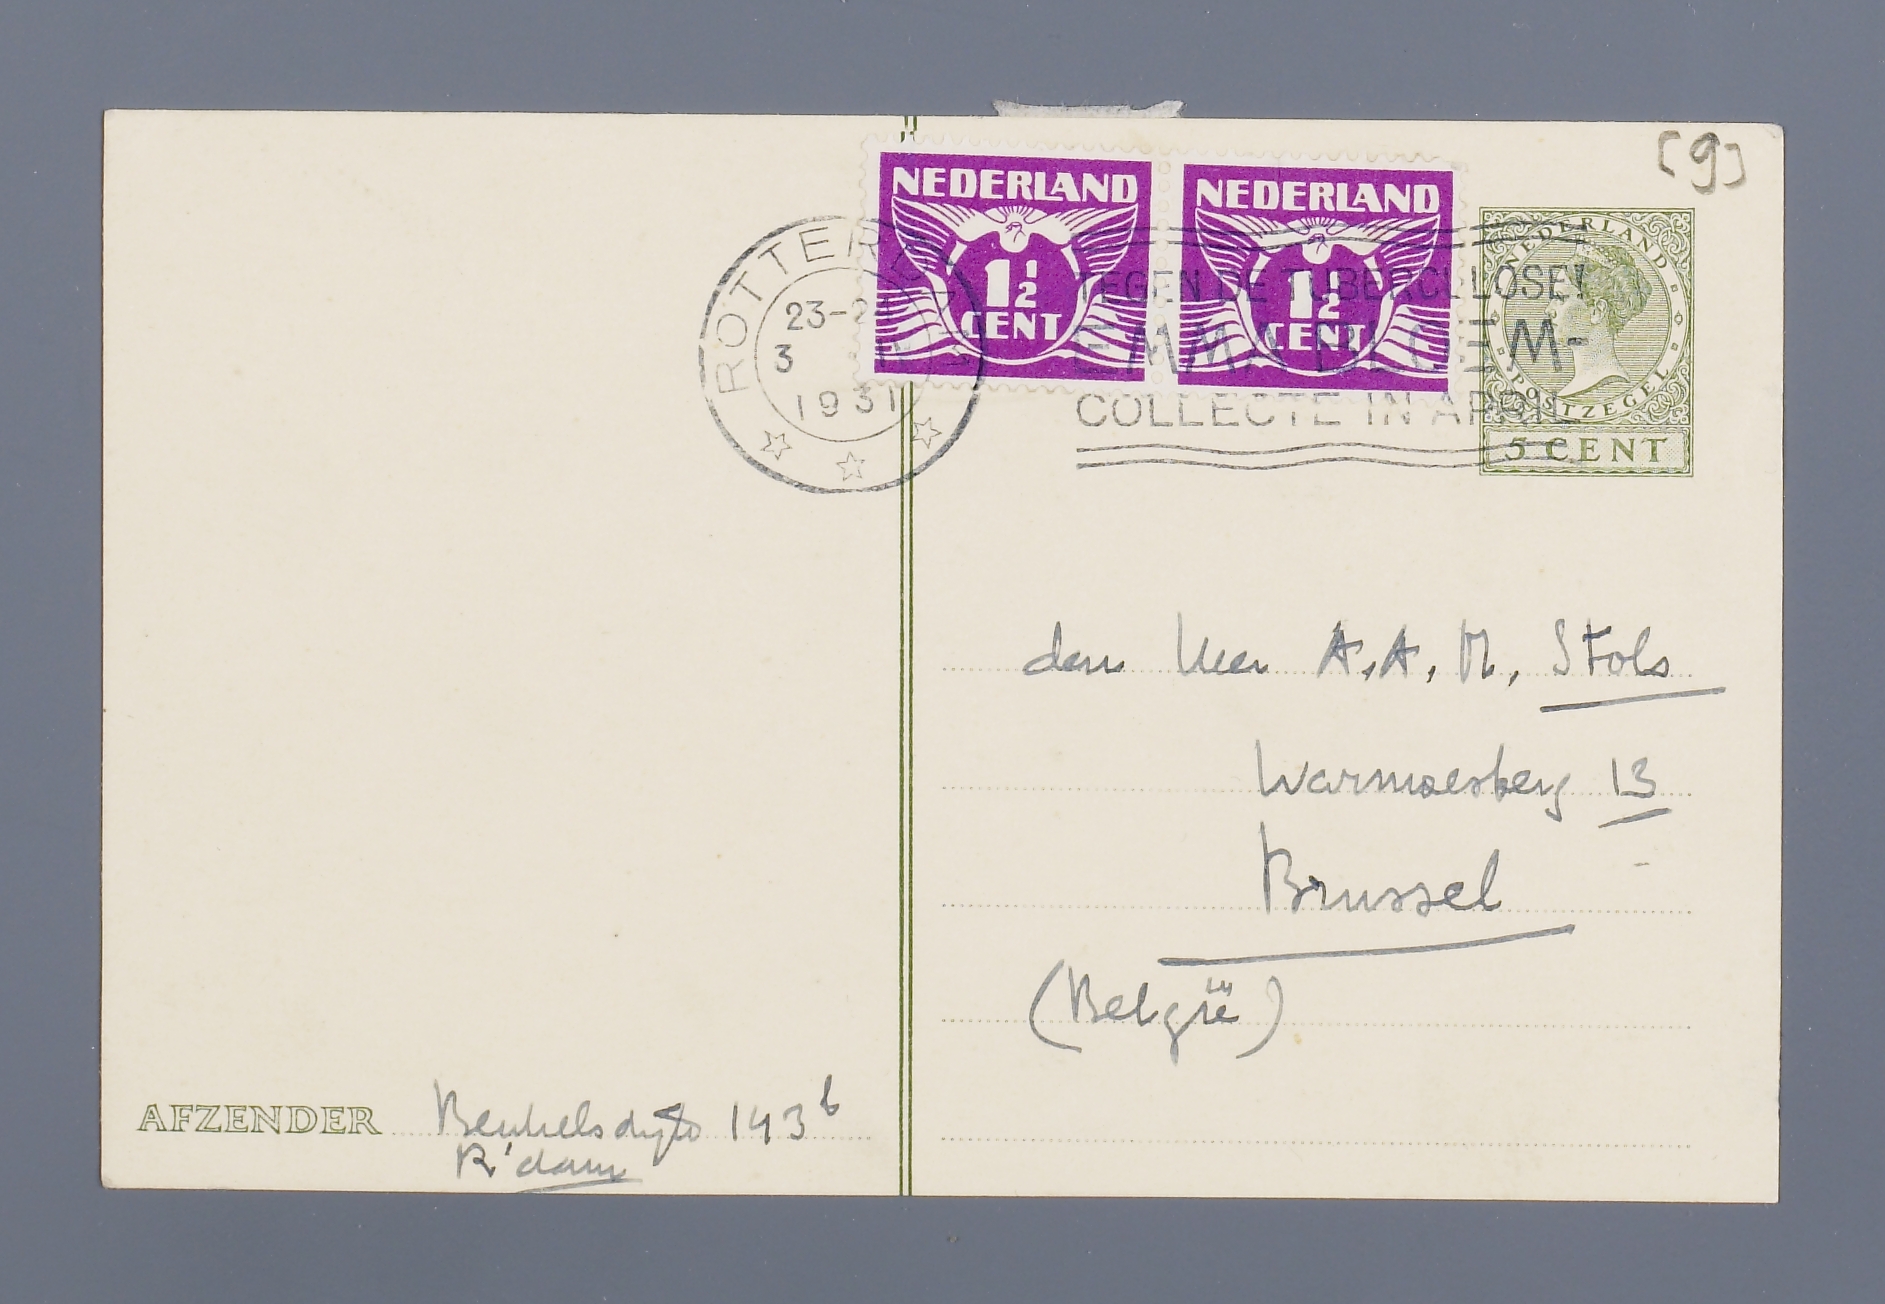 [9]
NEDERLAND
1½
CENT
NEDERLAND
1½
CENT
NEDERLAND
POSTZEGEL
5 CENT
ROTTERDAM
23-24
3
1931
TEGEN DE TUBERCULOSE!
EMMABLOEM-
COLLECTE IN APRIL
den Heer A.A.M. Stols
Warmoesberg 13
Brussel
(België)
AFZENDER Beukelsdijk 143b
R'dam